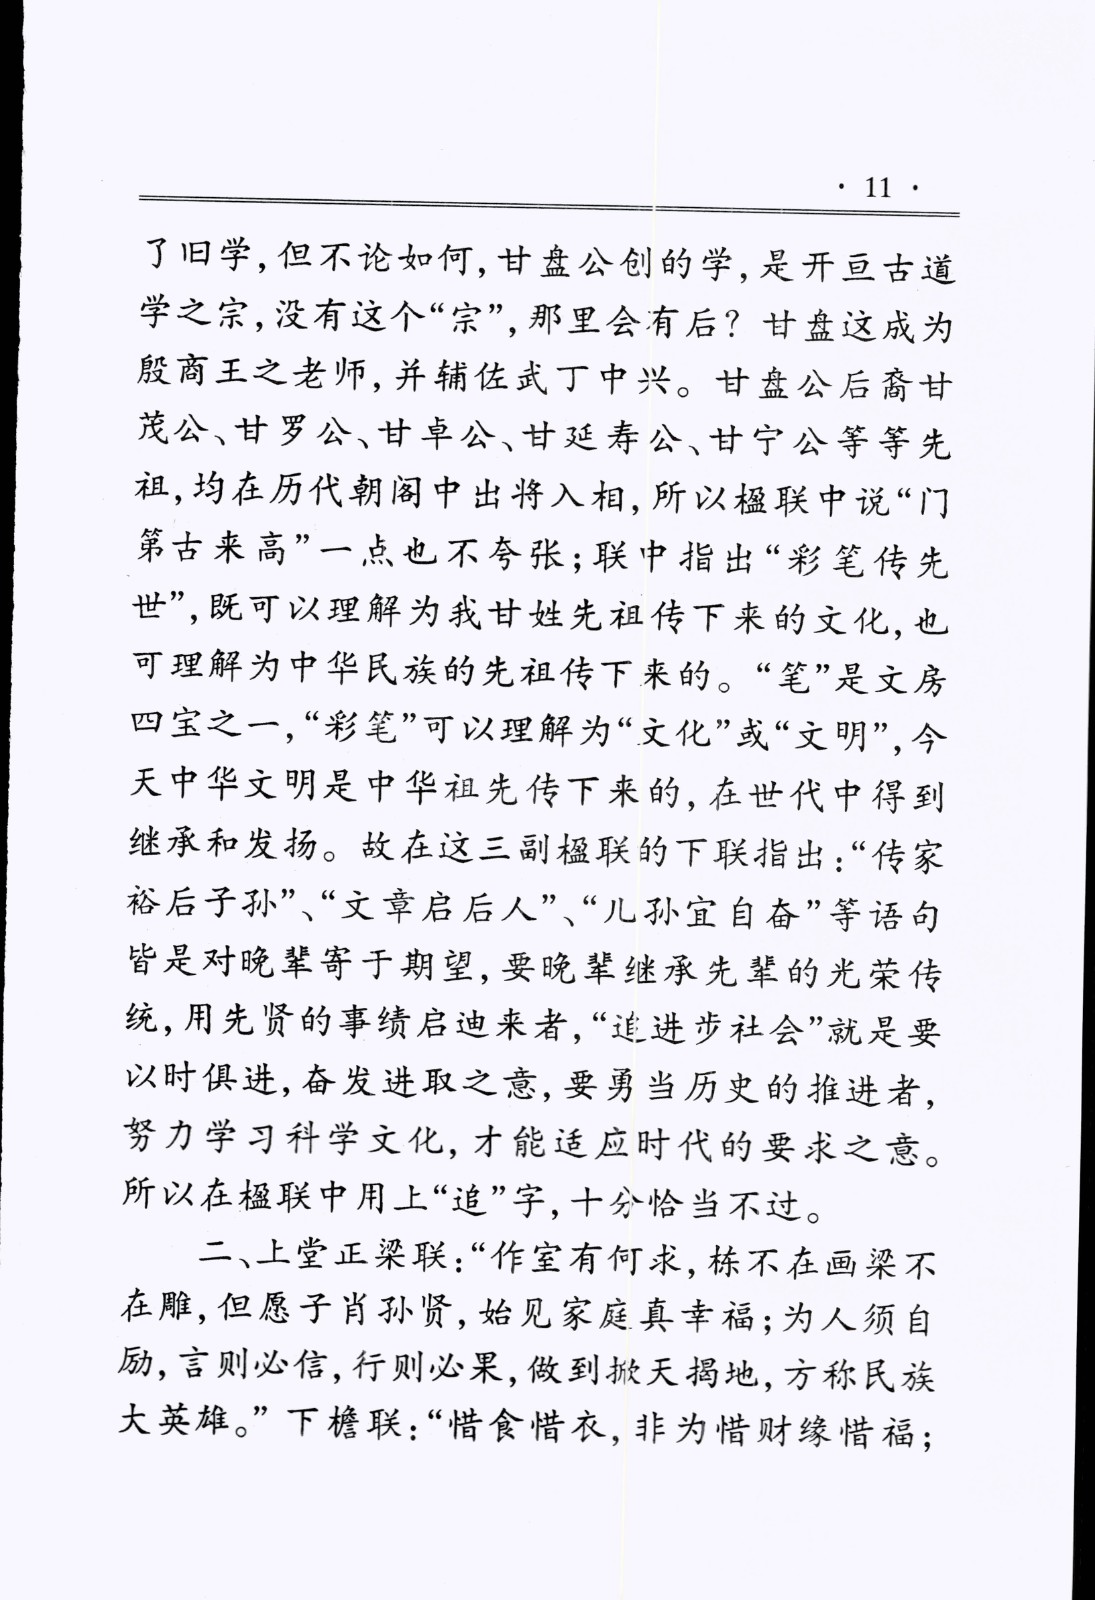 · 11 ·
了旧学，但不论如何，甘盘公创的学，是开亘古道
学之宗，没有这个“宗”，那里会有后？甘盘这成为
殷商王之老师，并辅佐武丁中兴。甘盘公后裔甘
茂公、甘罗公、甘卓公、甘延寿公、甘宁公等等先
祖，均在历代朝阁中出将入相，所以楹联中说“门
第古来高”一点也不夸张；联中指出“彩笔传先
世”，既可以理解为我甘姓先祖传下来的文化，也
可理解为中华民族的先祖传下来的。“笔”是文房
四宝之一，“彩笔”可以理解为“文化”或“文明”，今
天中华文明是中华祖先传下来的，在世代中得到
继承和发扬。故在这三副楹联的下联指出：“传家
裕后子孙”、“文章启后人”、“儿孙宜自奋”等语句
皆是对晚辈寄于期望，要晚辈继承先辈的光荣传
统，用先贤的事绩启迪来者，“追进步社会”就是要
以时俱进，奋发进取之意，要勇当历史的推进者，
努力学习科学文化，才能适应时代的要求之意。
所以在楹联中用上“追”字，十分恰当不过。
二、上堂正梁联：“作室有何求，栋不在画梁不
在雕，但愿子肖孙贤，始见家庭真幸福；为人须自
励，言则必信，行则必果，做到掀天揭地，方称民族
大英雄。”下檐联：“惜食惜衣，非为惜财缘惜福；